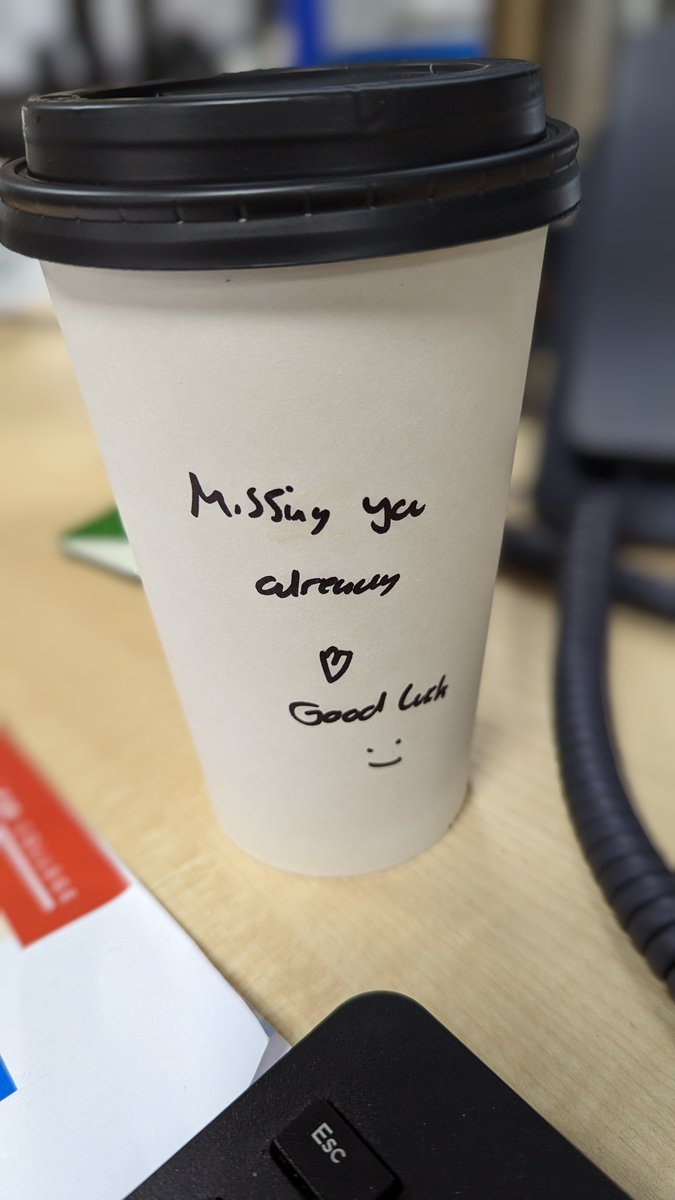 Missing you
already
♡
Good luck
:)
COLLEGE
Esc